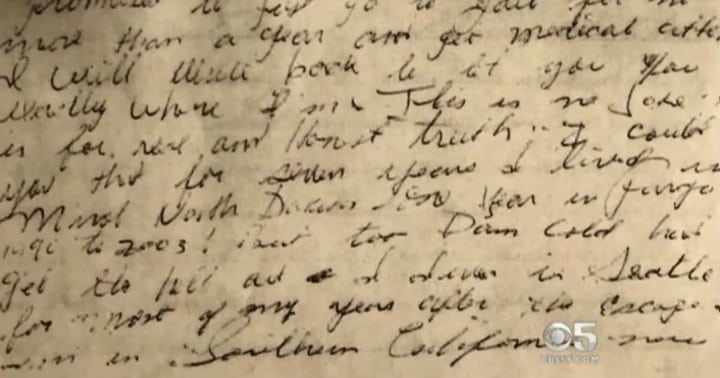 promised to first go to jail for no
more than a year and get medical atten
I will write back to let you you
exactly where I'm. This is no Joke
is for real and Honest truth. I could
you that for seven years I lived in
Minot North Dakota one year in Fargo
to 2003! but too Dam Cold here
get the hell out I liven in Seattle
for most of my years after the escape
in Southern California now
CBS 5
cbs5.com